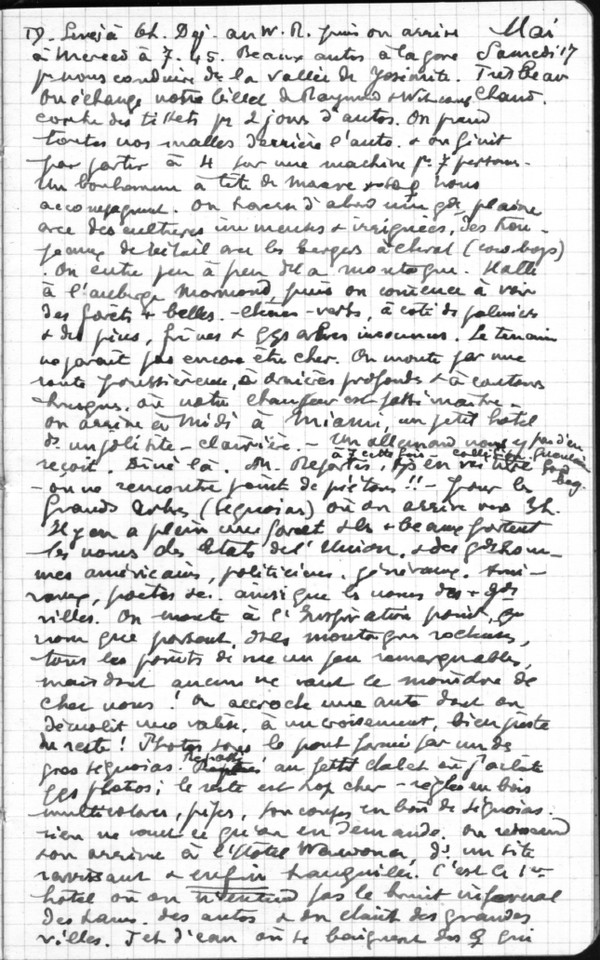 19. Levé à 6h. Dej. au W. R. puis on arrive Mai
à Merced à 7.45. Beaux autos à la gare Samedi 17
pr nous conduire ds la vallée de Josémite. Très Beau
On échange notre billet de Raymond & Whitcomb Chaud.
contre des tickets pr 2 jours d'autos. On prend
toutes nos malles derrière l'auto. & on finit
par partir à 4 sur une machine pr 7 person-
Un bonhomme à tête de nous
accompagnent. On traverse d'abord une gde plaine
avec des cultures immenses & irriguées, des trou-
peaux de bétail avec les bergers à cheval (cow boys)
. On entre peu à peu ds la montagne. Halte
à l'auberge Mormond, puis on commence à voir
des forêts + belles. - chênes-verts, à coté de palmiers
& des pins, frênes & qqs arbres inconnus. Le terrain
ne parait pas encore être cher. On monte par une
route poussiéreuse, à ornières profondes & à contours
brusques, où notre chauffeur est passé maitre -
on arrive à Midi à Miami, un petit hotel
ds un joli site - clairière. - Un allemand nous y
reçoit. Diné là. On Repartis,
- on ne rencontre point de piétons !! - pour les
Grands Arbres (Sequoias) où on arrive vers 3h.
Il y en a plein une forêt & les + beaux portent
les noms des Etats de l'Union, & des gds hom-
mes américains, politiciens, généraux, ami-
raux, poètes etc. ainsi que les noms des + gdes
villes. On monte à l'Inspiration point,
nom que portent, ds les montagnes rocheuses,
tous les points de vue un peu remarquables,
mais dont aucun ne vaut le moindre de
chez nous ! On accroche une auto dont on
démolit une valise, à un croisement, bien juste
du reste ! Photos sous le pont formé par un de
gros sequoias. Repassé au petit chalet où j'achète
qqs photos ; le reste est trop cher - règles en bois
multicolores, pipes, soucoupes en bois de séquoias -
rien ne vaut ce qu'on en demande. On redescend
& on arrive à l'Hotel Wawona, ds un site
ravissant & enfin tranquille. C'est le 1er
hotel où on n'entend pas le bruit infernal
des trams, des autos & on clairt des grandes
villes. Jet d'eau où se baignent des qui